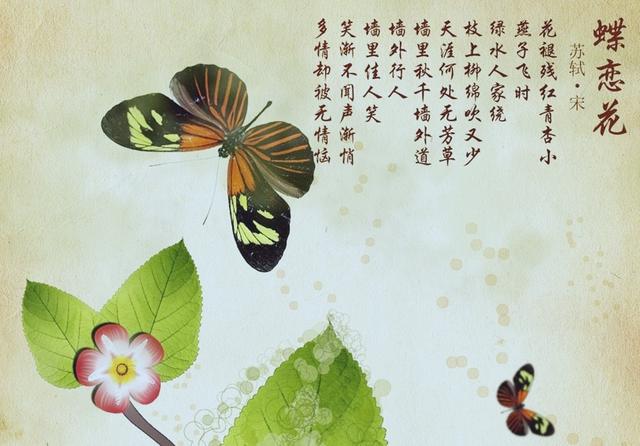 蝶恋花
苏轼·宋
花褪残红青杏小
燕子飞时
绿水人家绕
枝上柳绵吹又少
天涯何处无芳草
墙里秋千墙外道
墙外行人
墙里佳人笑
笑渐不闻声渐悄
多情却被无情恼